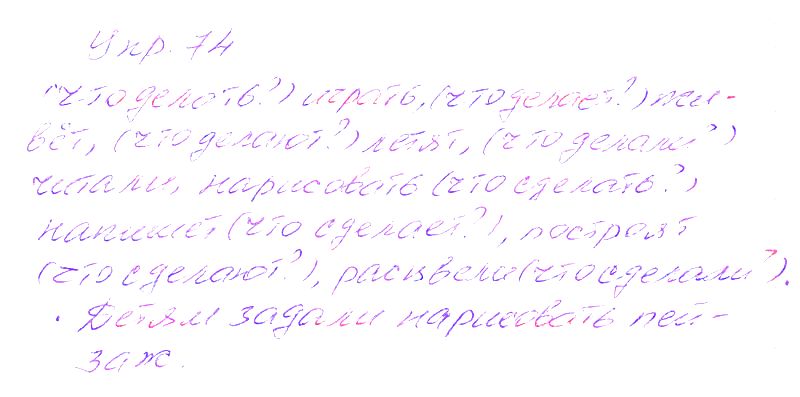 Упр. 74
(что делать?) играть, (что делает?) жи-
вёт, (что делают?) летят, (что делали?)
читали, нарисовать (что сделать?)
напишет (что сделает?), построят
(что сделают?), расцвели (что сделали?).
Детям задали нарисовать пей-
заж.